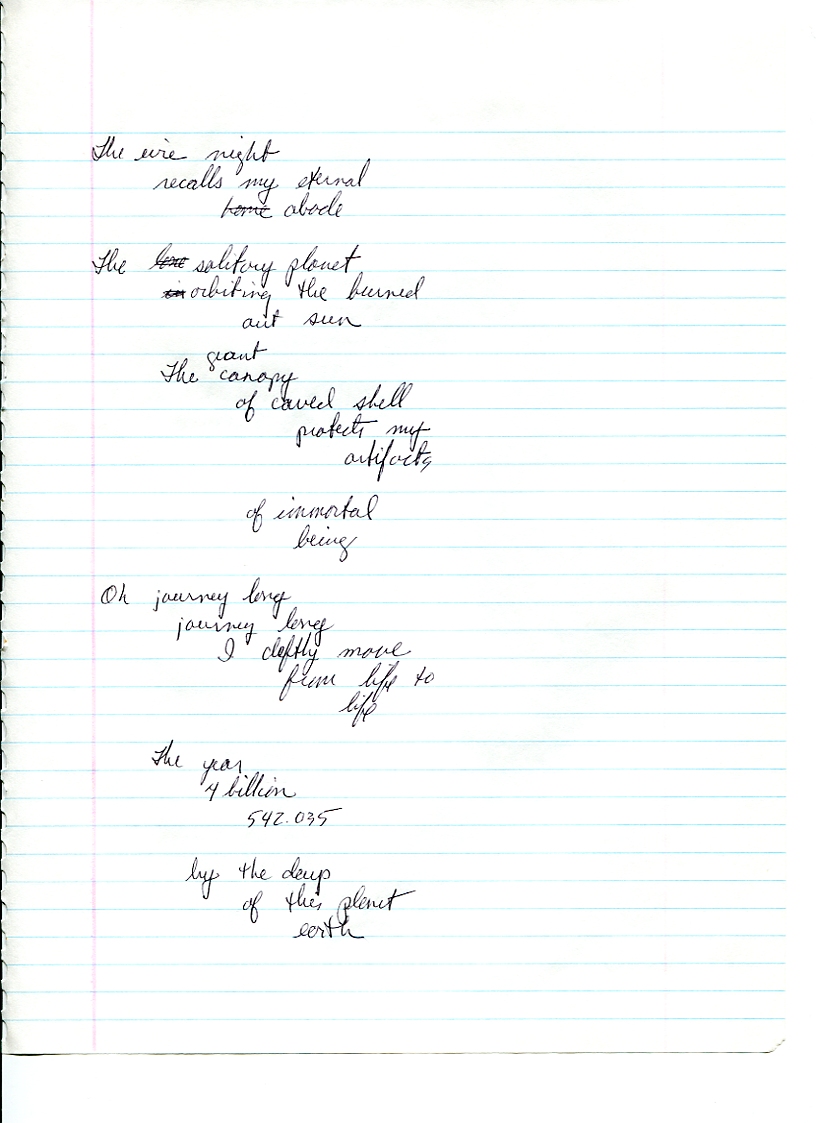 The eire night
recalls my eternal
home abode
The lone solitary planet
in orbiting the burned
out sun
giant
The canopy
of caved shell
protects my
artifacts
of immortal
being
Oh journey long
journey long
I deftly move
from life to
life
The year
4 billion
542.035
by the
of this planet
earth